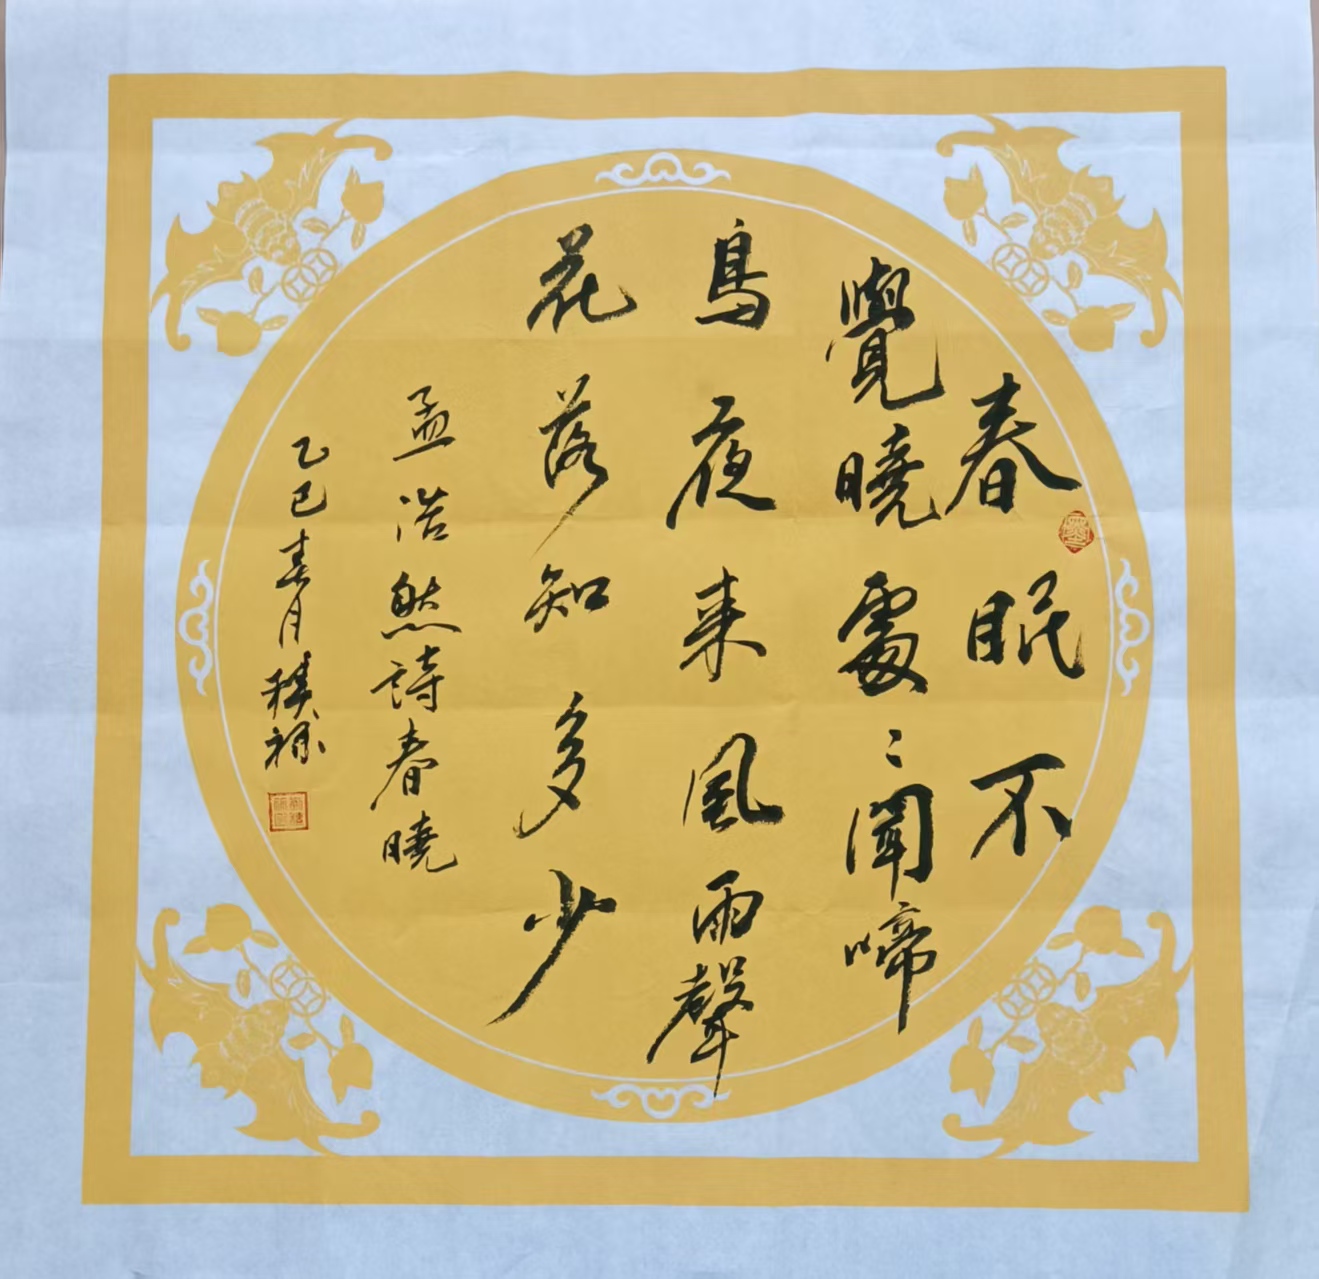 春眠不
覺曉處〻聞啼
鳥夜来風雨聲
花落知多少
孟浩然詩春曉
乙巳春月